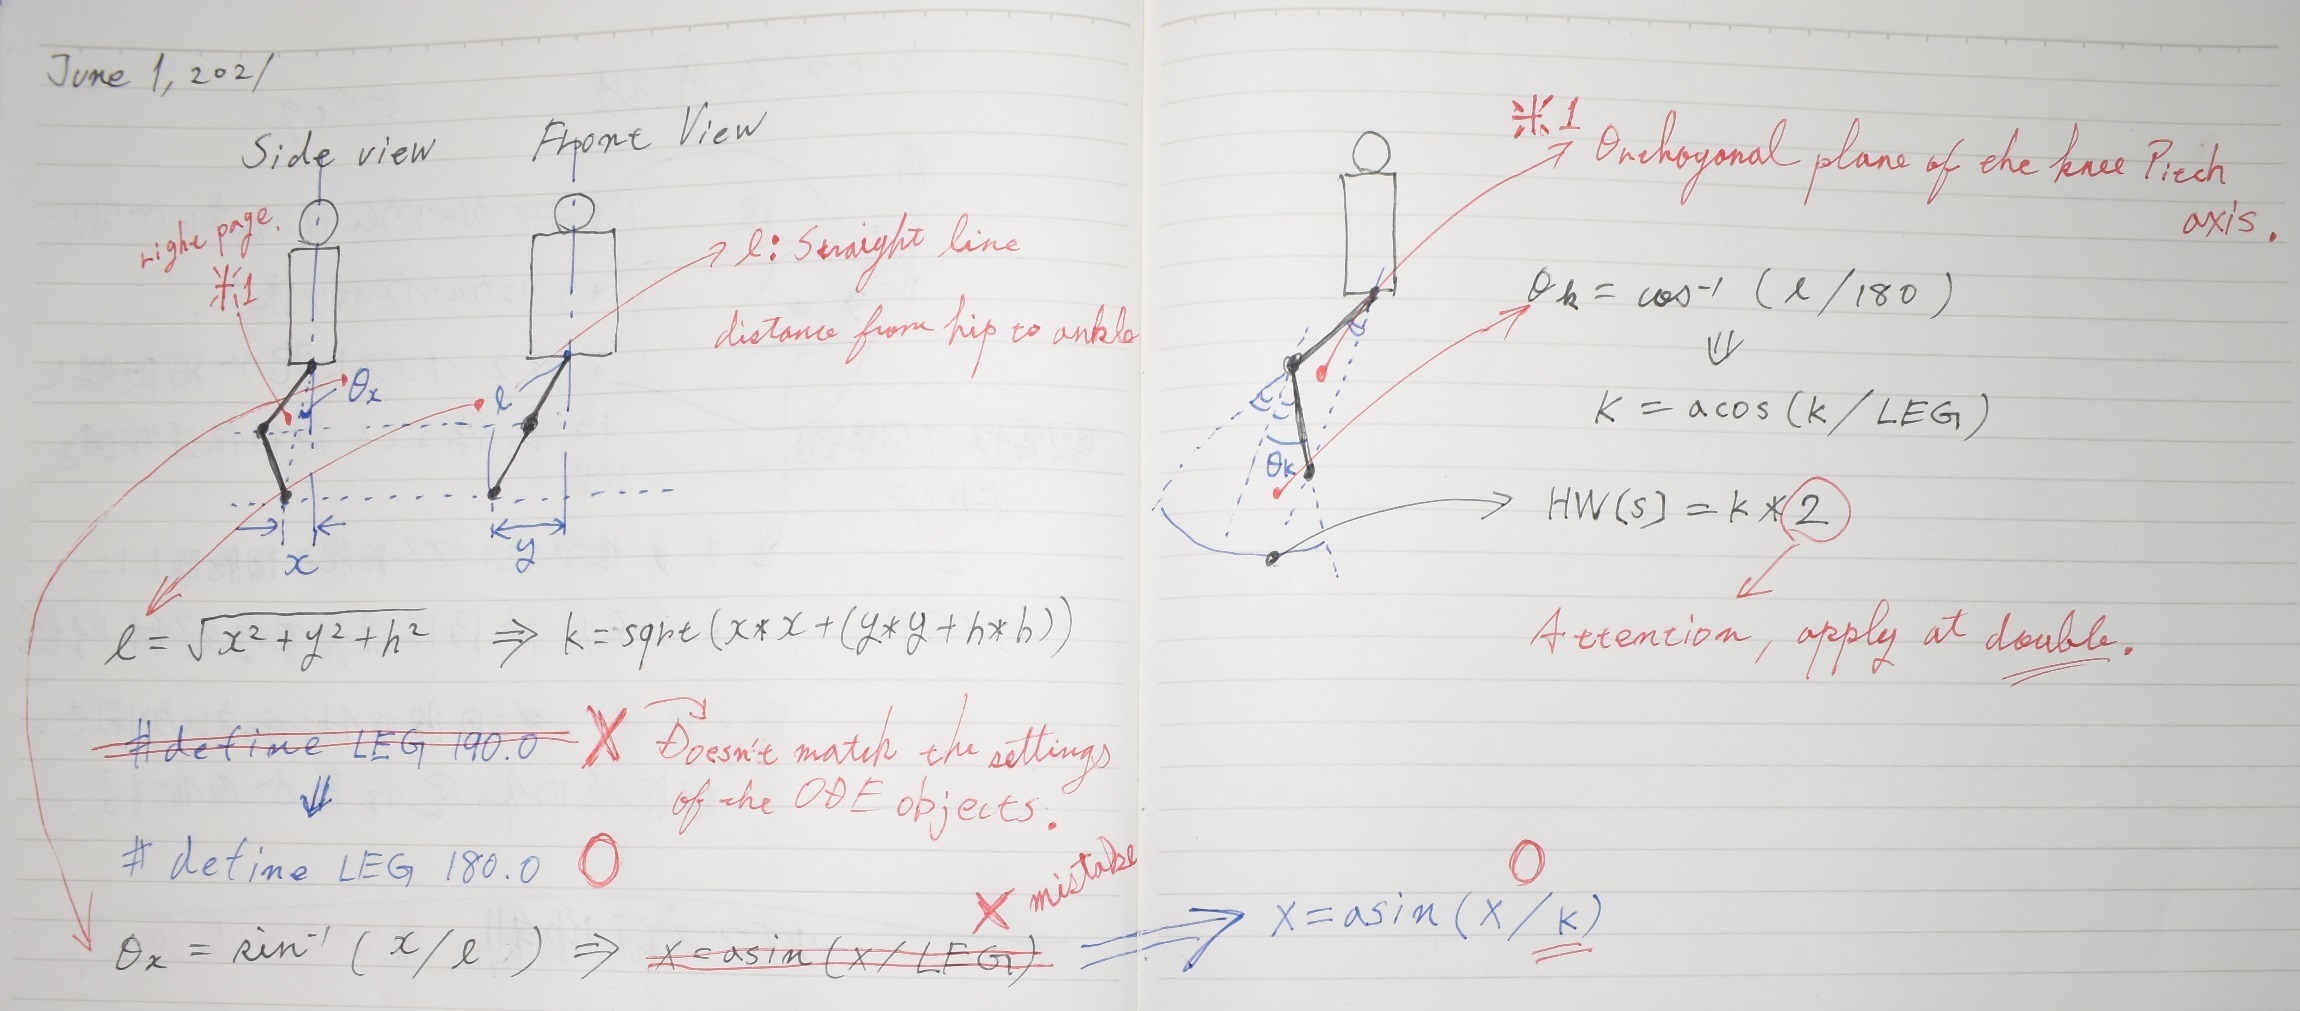 June 1, 2021
Side view
Front View
right page.
※1
θx
l
l: Straight line
distance from hip to ankle
x
y
l = √x² + y² + h² ⇒ k = sqrt(x*x+(y*y+h*h))
#define LEG 190.0 X Doesn't match the settings
of the ODE objects.
⇓
#define LEG 180.0 O
θx = sin⁻¹ (x/l) ⇒ x=asin(x/LEG) X mistake
※1
Orthogonal plane of the knee Pitch
axis.
θk = cos⁻¹ (l/180)
⇓
K = acos(k/LEG)
θk
HW[s] = k*2
Attention, apply at double.
O
x=asin(x/k)